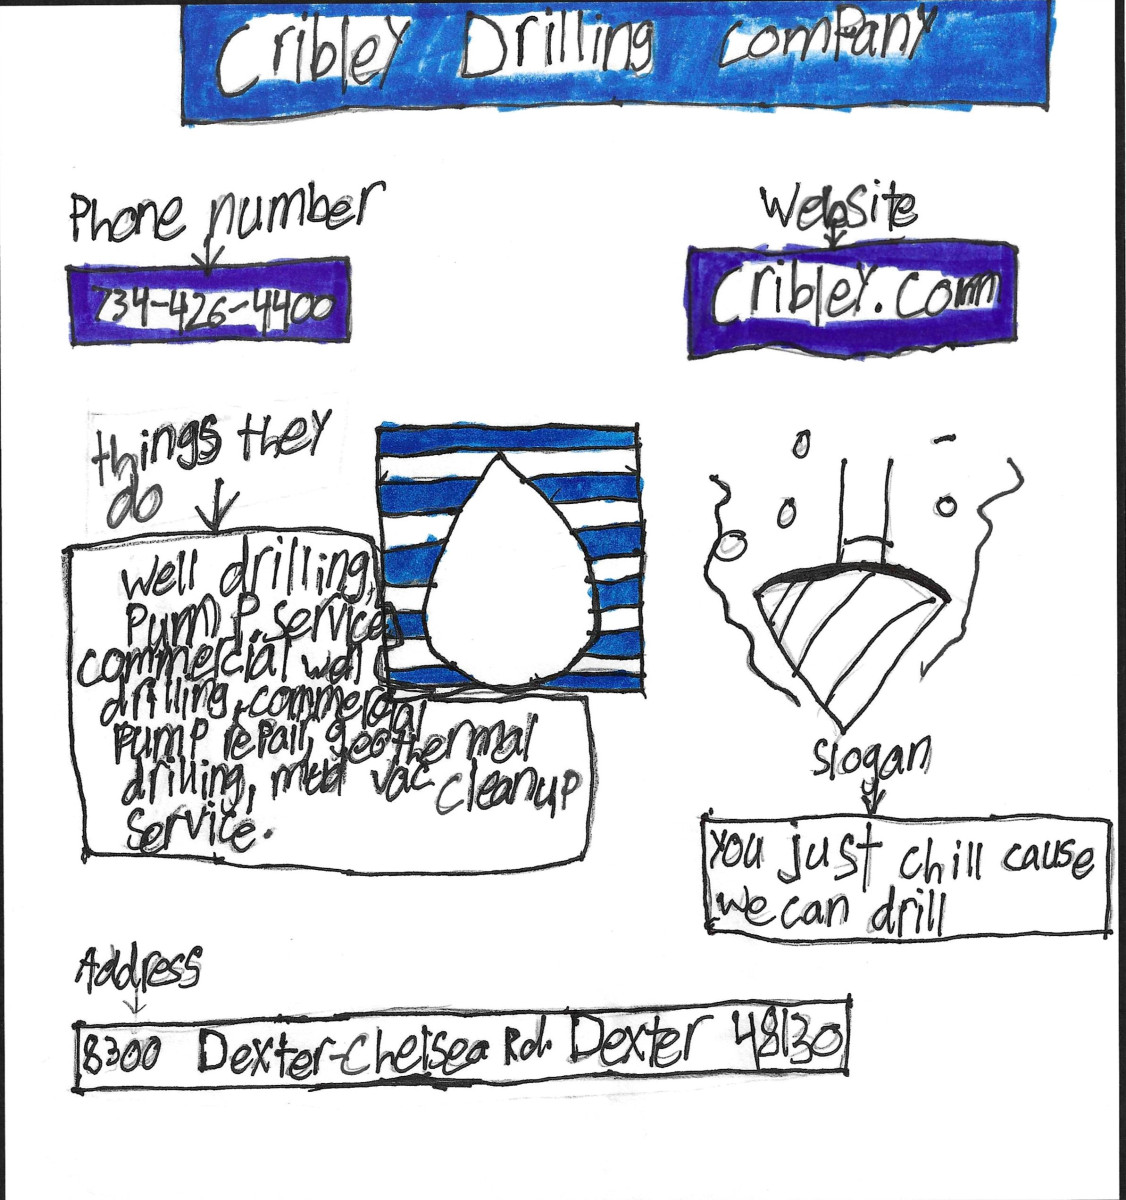 Cribley Drilling company
Phone number
734-426-4400
Website
Cribley.com
things they
do
Well drilling,
Pump service,
commercial well
drilling, commercial
pump repair, geothermal
drilling, mud vac cleanup
service.
Slogan
You just chill cause
we can drill
Address
8300 Dexter-Chelsea Rd. Dexter 48130